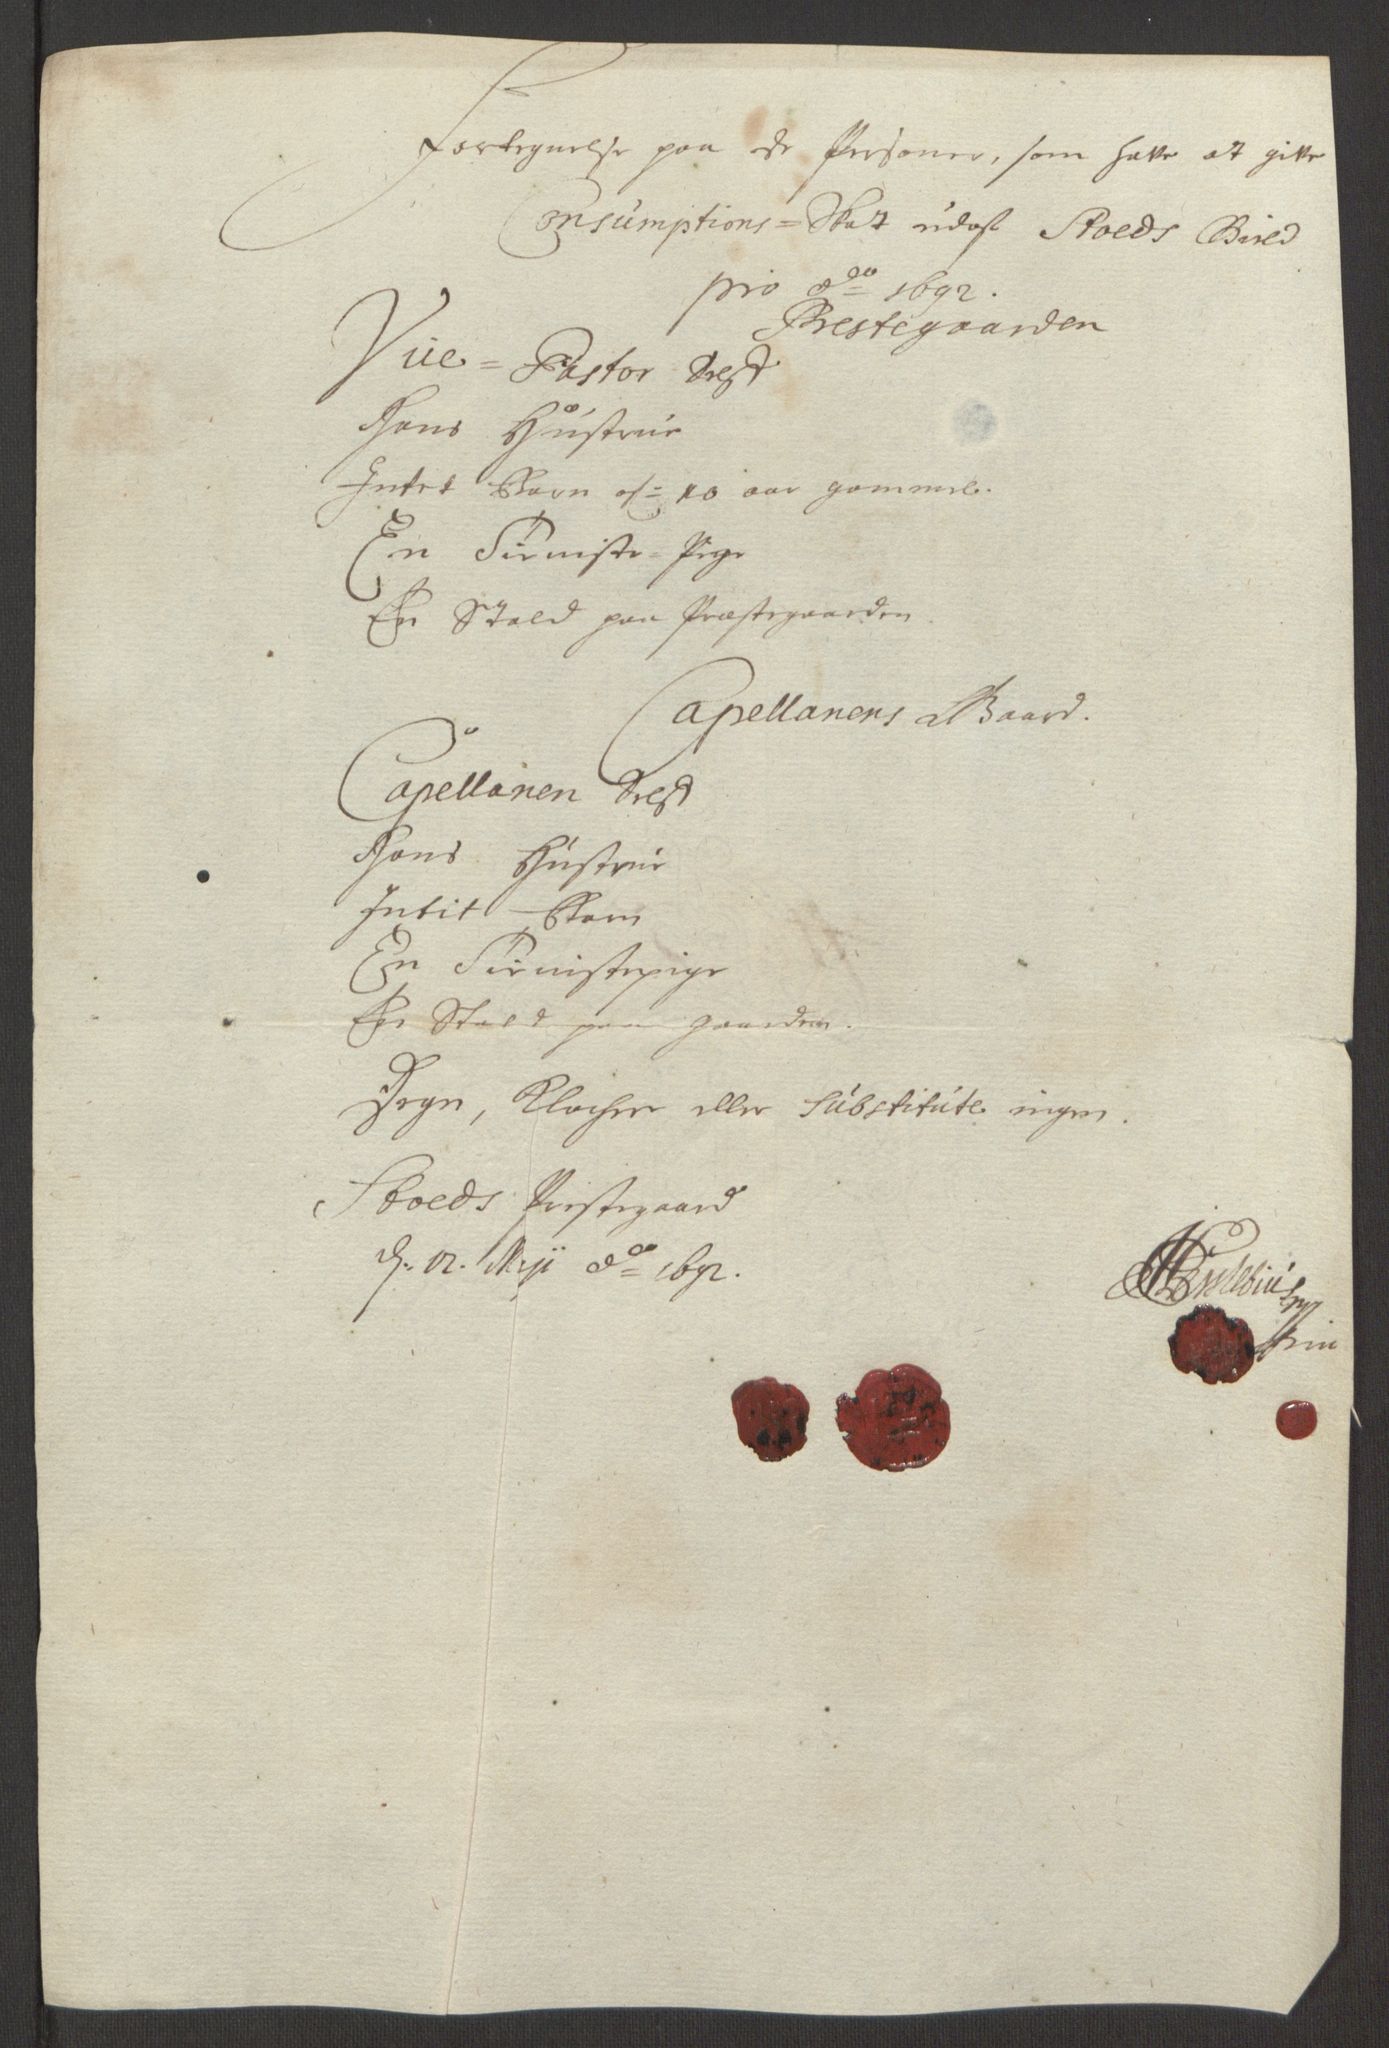 Fortegnelse paa de Personer, som haver at give
Consumptions=Skat udaf Skoeds Gield
pro Ao= 1692.
Prestegaarden
Vice=Pastor Self
Hans Hustrue
Intet Barn of= 10 aar gammel.
En Tieniste=Pige
En Stald paa Præstegaarden.
Capellanens Gaard.
Capellanen Self
Hans Hustrue
Intit Barn
En Tienistepige
En Stald paa gaarden.
Degn, Klocher eller Substitute ingen.
Skoeds Prestegaard
d. 12. Maji Ao= 1692.